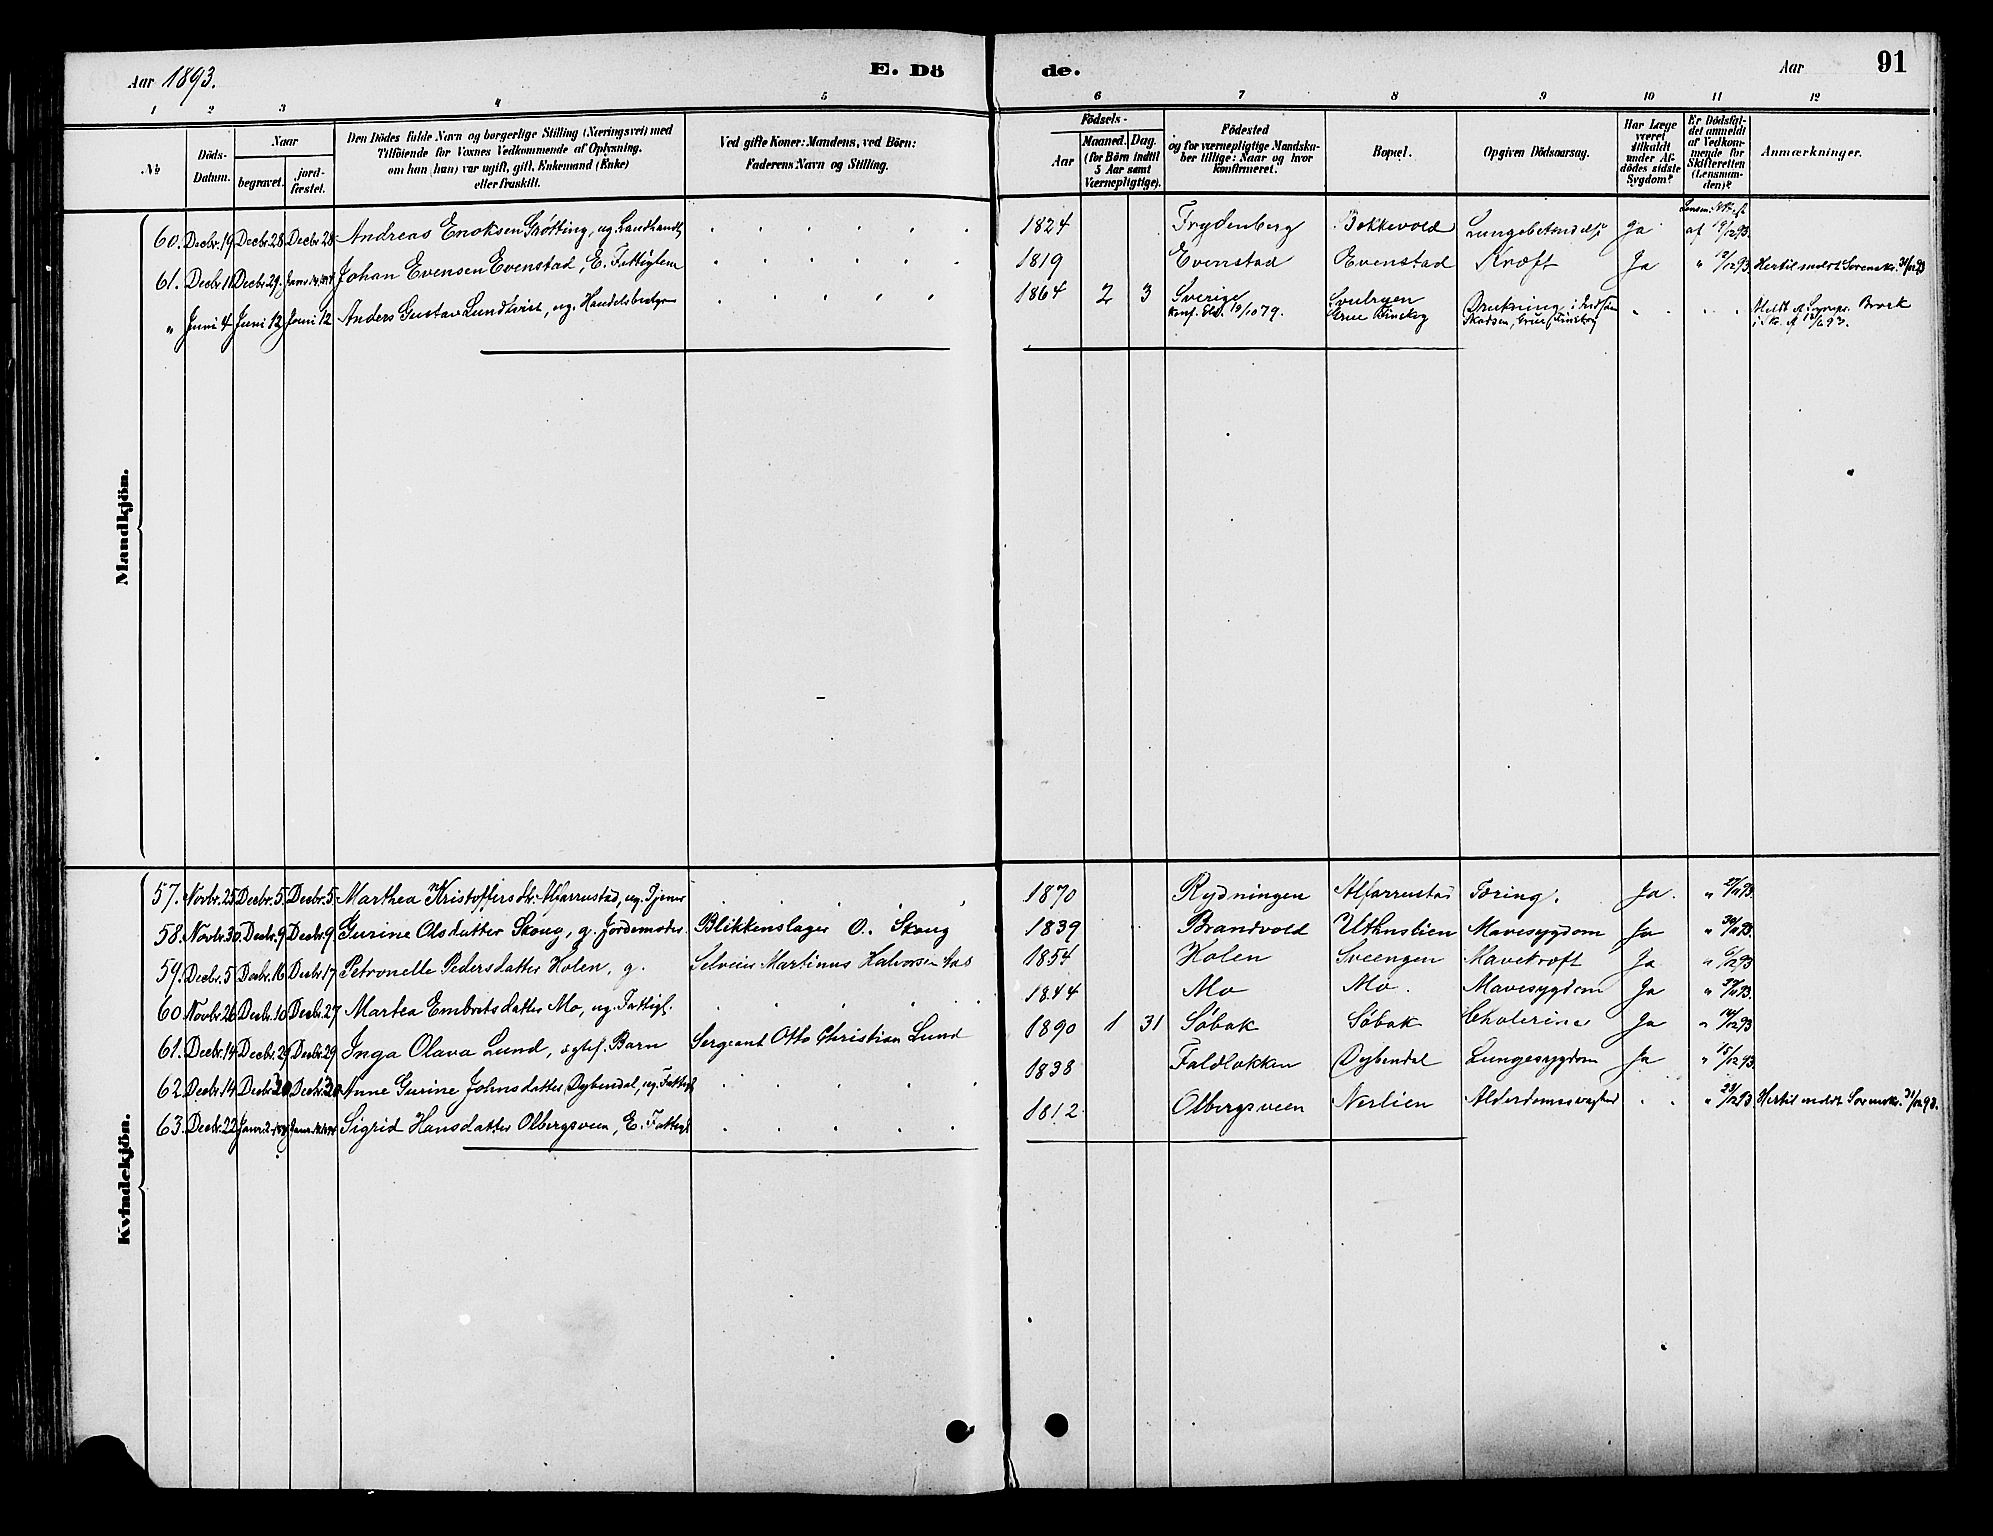 Aar 1893. E. Dö de. Aar 91
1 2 3 4 5 6 7 8 9 10 11 12
№ Döds-Datum. Naar begravet. jord-fæstet. Den Dödes fulde Navn og borgerlige Stilling (Næringsvei) med Tilföiende for Voxnes Vedkommende af Oplysning, om han (hun) var ugift, gift, Enkemand (Enke) eller fraskilt. Ved gifte Koner: Mandens, ved Börn: Faderens Navn og Stilling. Födsels- Aar Maaned. Dag. (for Börn indtil 5 Aar samt Værnepligtige). Födested og for værnepligtige Mandska-ber tillige: Naar og hvor konfirmeret. Bopæl. Opgiven Dödsaarsag. Har Læge været tilkaldt under Af-dödes sidste Sygdom? Er Dödsfal-det anmeldt af Vedkom-mende for Skifteretten (Lensman-den)? Anmærkninger.
Mandkjön.
60. Decbr. 19 Decbr. 28 Decbr. 28 Andreas Enoksen Grøtting, ug. Landhandl. 1824 Frydenberg Bekkevold Lungebetændelse Ja af 19/12 93.
61. Decbr. 11 Decbr. 29. Johan Evensen Evenstad, E. Fattiglem 1819 Evenstad Evenstad Kræft Ja " 12/12 93. Hertil meldt Sorenskr. 31/12 93
" Juni 4 Juni 12 Juni 12 Anders Gustav Lundkvist, ug. Handelsbestyrer 1864 2 3 Sverige konf. 19/10 79. Svulryen Grue Finskog Drukning i Skasen, Grue Finskog
Kvindekjön.
57. Novbr. 25 Decbr. 5. Decbr. 5 Marthea Kristoffersdtr. Alfarrustad, ug. Tjener 1870 Rydningen Alfarrustad Tæring. Ja. " 27/11 93.
58. Novbr. 30. Decbr. 9 Decbr. 9 Gurine Olsdatter Skoug, g. Jordemoder Blikkenslager O. Skoug 1839 Brandvold Uthuslien Mavesygdom Ja " 30/11 93.
59. Decbr. 5 Decbr. 16 Decbr. 17 Petronelle Pedersdatter Holen, g. Selveier Martinus Halvorsen 1854 Holen Sveengen Mavekræft Ja " 6/12 93
60 Novbr. 26 Decbr. 10 Decbr. 27 Martea Embretsdatter Mo, ug. Fattigl. 1844 Mo Mo. Mavesygdom Ja
61. Decbr. 14 Decbr. 29 Decbr. 29 Inga Olava Lund, ægtef. Barn Sergeant Otto Christian Lund 1890 1 31 Søbak Søbak Cholerine Ja " 14/12 93
62 Decbr. 14 Anne Gurine Johnsdatter Dybendal, ug. Fattigl. 1838 Faldlokken Dybendal Lungesygdom Ja " 15/12 93.
63. Decbr. 22 Sigrid Hansdatter Olbergsveen, E. Fattigl. 1812. Olbergsveen Nerlien Alderdomssvaghed " 23/12 93 Hertil meldt Sorenskr. 31/12 93.